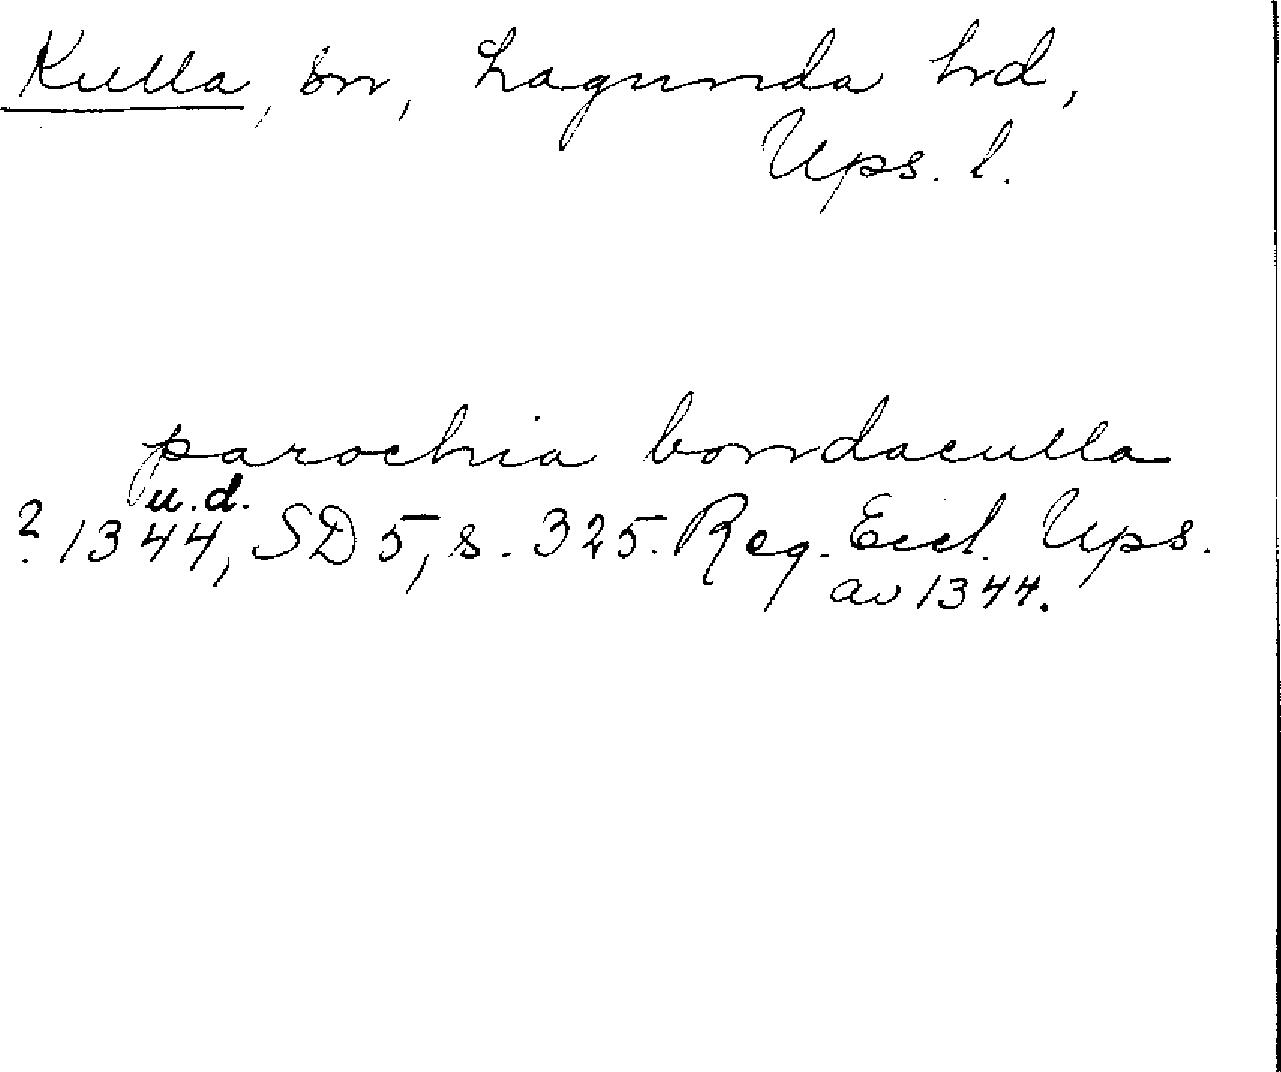 Kulla, sn, Lagunda hd,
Ups. l.
parochia bondaculla
u.d.
? 1344, SD 5, s. 325. Reg. Eccl. Ups.
av 1344.